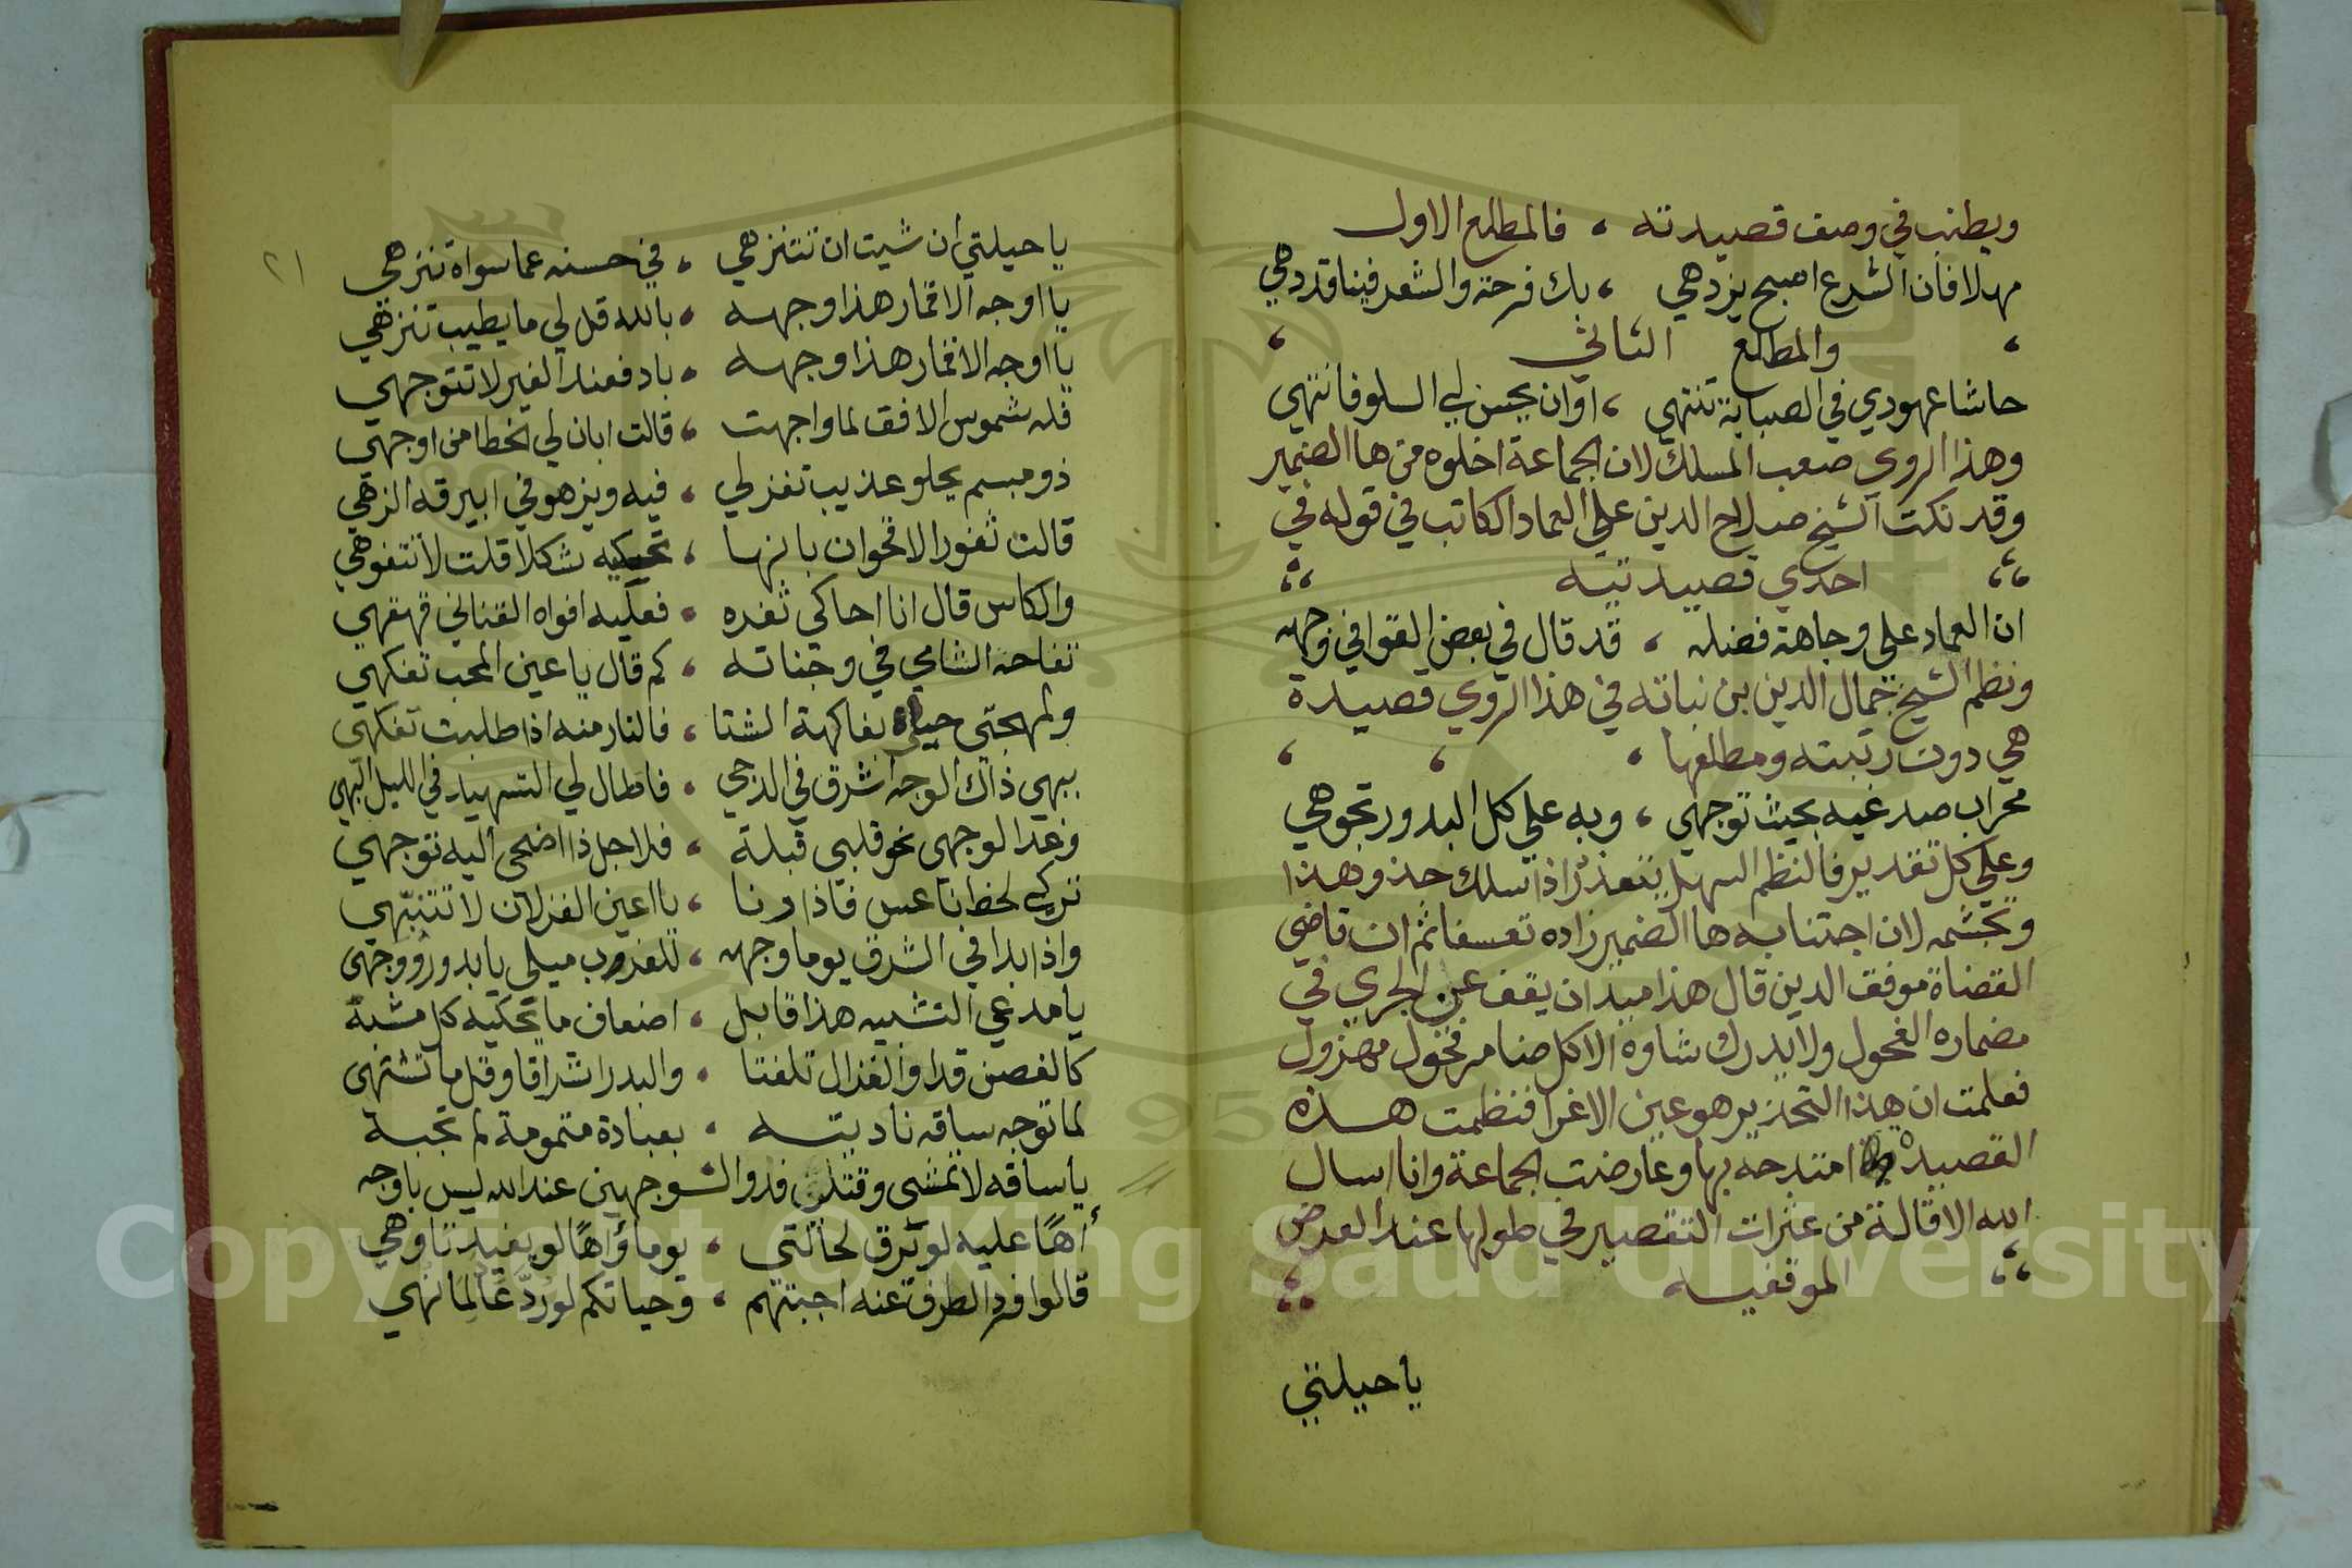 ويطنب في وصف قصيدته ، فالمطلع الاول
مهلا فان الشرع اصبح يزدهي ، بك فرحة والشعر فينا قد دهي
والمطلع الثاني
حاشا عهودي في الصبابة تنتهي ، اوان يحسن لي السلو فانتهي
وهذا الروي صعب المسلك لان الجماعة اخلوه من ها الضمير
وقد نكت الشيخ صلاح الدين علي العماد الكاتب في قوله في
احدي قصيدتيه
ان العماد علي وجاهة فضله ، قد قال في بعض القوافي وجهه
ونظم الشيخ جمال الدين بن نباته في هذا الروي قصيدة
هي دون رتبته ومطلعها ،
محراب صدغيه بحيث توجهي ، وبه علي كل البدور تجوهي
وعلي كل تقدير فالنظم السهل يتعذر اذا سلك حذو هذا
وتجشمه لان اجتنابه ها الضمير زاده تعسفا ثم ان قاضي
القضاة موفق الدين قال هذا ميدان يقف عن الجري في
مضماره الفحول ولا يدرك شاوه الا كل ضامر فحول مهزول
فعلمت ان هذا التحذير هو عين الاغرا فنظمت هذه
القصيدة امتدحه بها وعارضت الجماعة وانا اسال
الله الاقالة من عثرات التقصير في طولها عند العرض
الموفقيه
يا حيلتي
٢١
يا حيلتي ان شيت ان تتنزهي ، في حسنه عما سواه تنزهي
يا اوجه الاقمار هذا وجهه ، بالله قل لي ما يطيب تنزهي
يا اوجه الاقمار هذا وجهه ، باد فعند الغير لا تتوجهي
فله شموس الافق لما واجهت ، قالت ابان لي الخطا من اوجهي
ذو مبسم يحلو عذيب تغزلي ، فيه ويزهو في ابيرقه الزهي
قالت ثغور الاقحوان بانها ، تحكيه شكلا قلت لا تتفوهي
والكاس قال انا احاكي ثغره ، فعليه افواه القناني قهقهي
تفاحه الشامي في وجناته ، كم قال يا عين المحب تفكهي
ولمهجتي حياه بفاكهة الشتا ، فالنار منه اذا طلبت تفكهي
ببهي ذاك الوجه اشرق في الدجي ، فاطال لي التسهيد في الليل البهي
وغدا لوجهي نحو قلبي قبلة ، فلاجل ذا اضحى اليه توجهي
تركي لحظ ناعس فاذا رنا ، يا اعين الغزلان لا تتنبهي
واذا بدا في الشرق يوما وجهه ، للغروب ميلي يا بدور ووجهي
يا مدعي التشبيه هذا قابل ، اضعاف ما تحكيه كل مشبه
كالغصن قدا والغزال تلفتا ، والبدر اشراقا وقل ما تشتهي
لما توجه ساقه ناديته ، بعبادة متمومة لم تجبه
يا ساقه لا تمشي وقتلن فدوا لشو جهين عند الله ليس باوجه
أهًا عليه لو يرق لحالتي ، يوما وأهًا لو يفيدنا وهي
قالوا فرد الطرف عنه اجبتهم ، وحياتكم لو رد عالما نهي